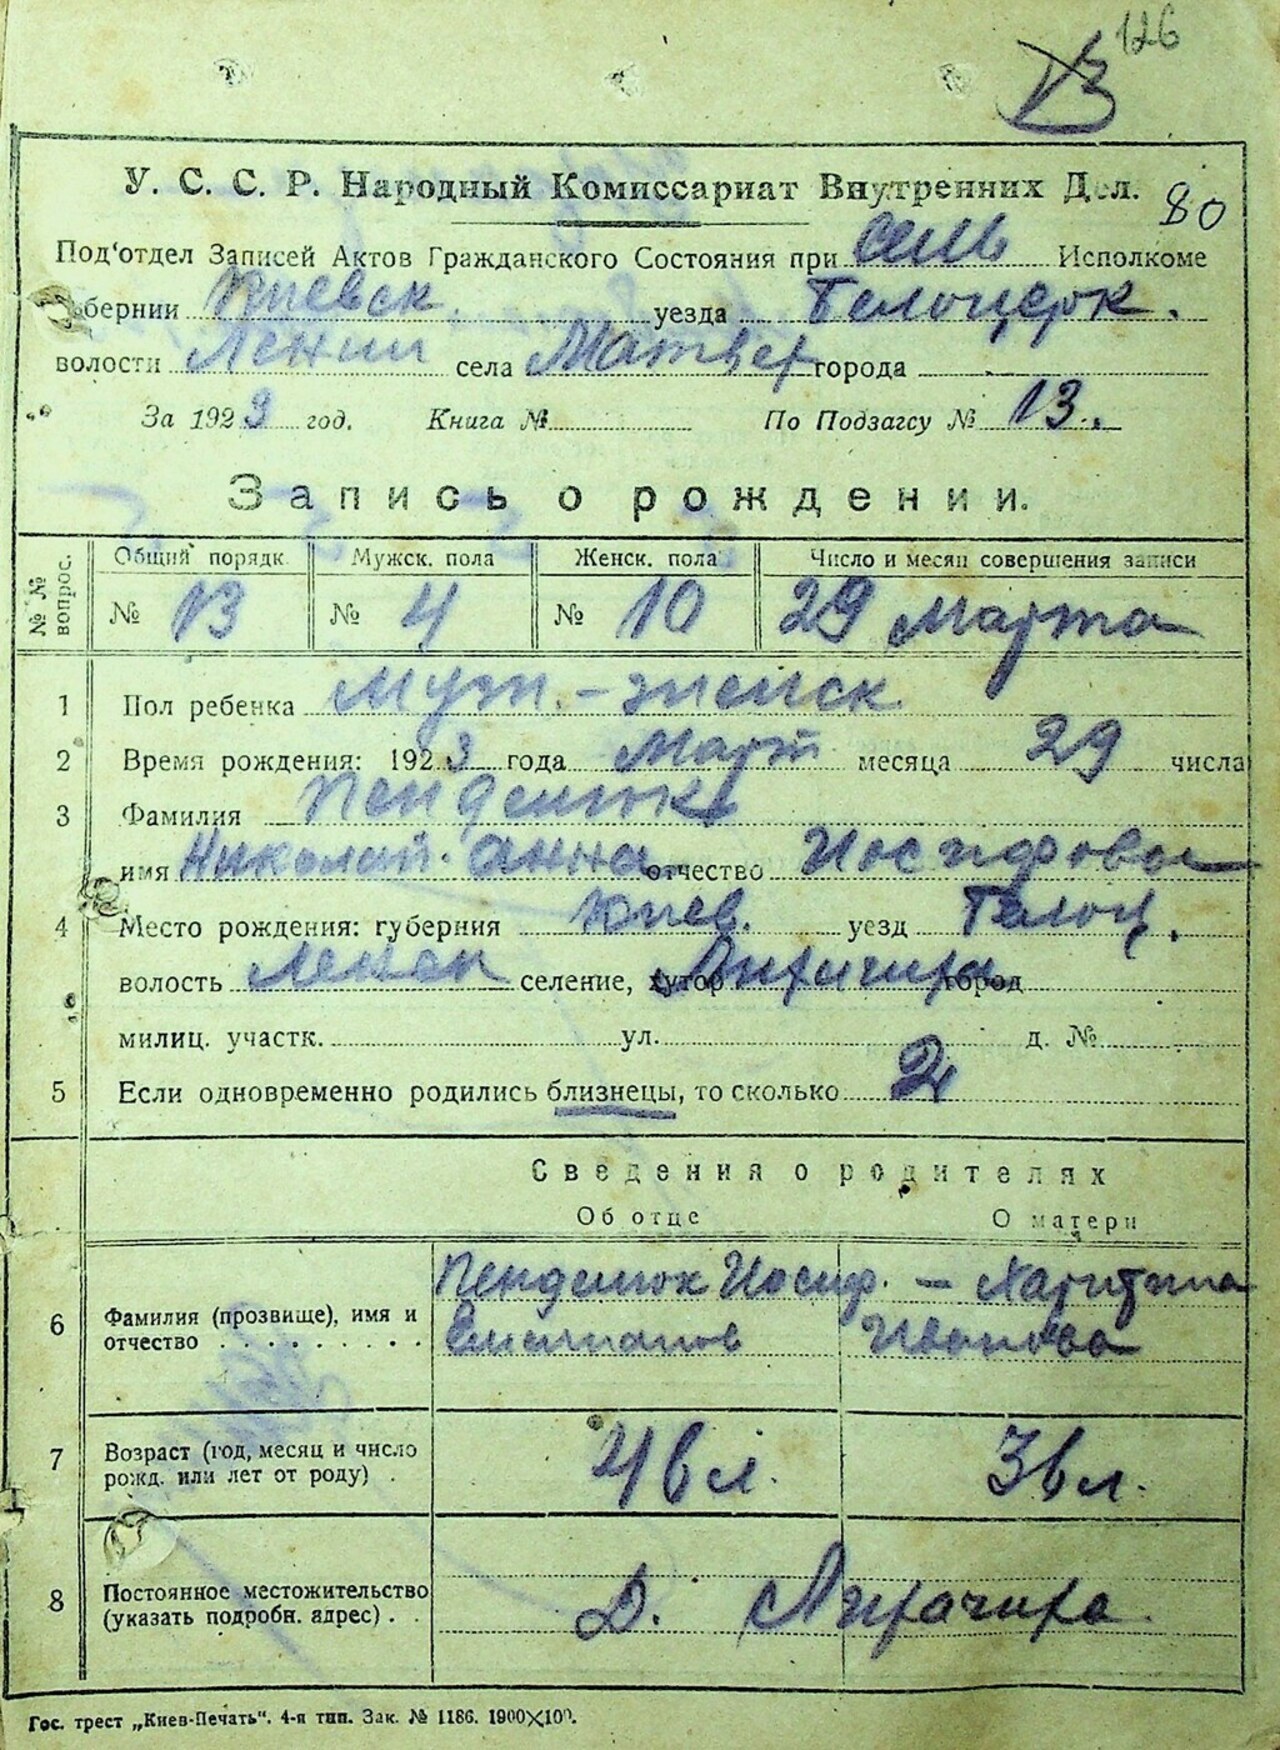 126
13
У. С. С. Р. Народный Комиссариат Внутренних Дел. 80
Под'отдел Записей Актов Гражданского Состояния при Сель Исполкоме
бернии Киевск. уезда Белоцерк.
волости Ленин села Матвех города
За 1923 год. Книга № По Подзагсу № 13.
Запись о рождении.
№ № вопрос. Общий порядк. Мужск. пола Женск. пола Число и месяц совершения записи
№ 13 № 4 № 10 29 Марта
1 Пол ребенка Муж. - женск
2 Время рождения: 1923 года Март месяца 29 числа
3 Фамилия Пендешюк
имя Николай. Анна отчество Иосифова
4 Место рождения: губерния Киев. уезд Белоц.
волость Ленин селение, хутор город
милиц. участк. ул. д. №
5 Если одновременно родились близнецы, то сколько 2
Сведения о родителях
Об отце О матери
6 Фамилия (прозвище), имя и Иосиф. — Харитина
отчество . . . . . . . . . Иванова
7 Возраст (год, месяц и число 46 л. 36 л.
рожд. или лет от роду) .
8 Постоянное местожительство Д.
(указать подробн. адрес) . .
Гос. трест „Киев-Печать". 4-я тип. Зак. № 1186. 1900X100.